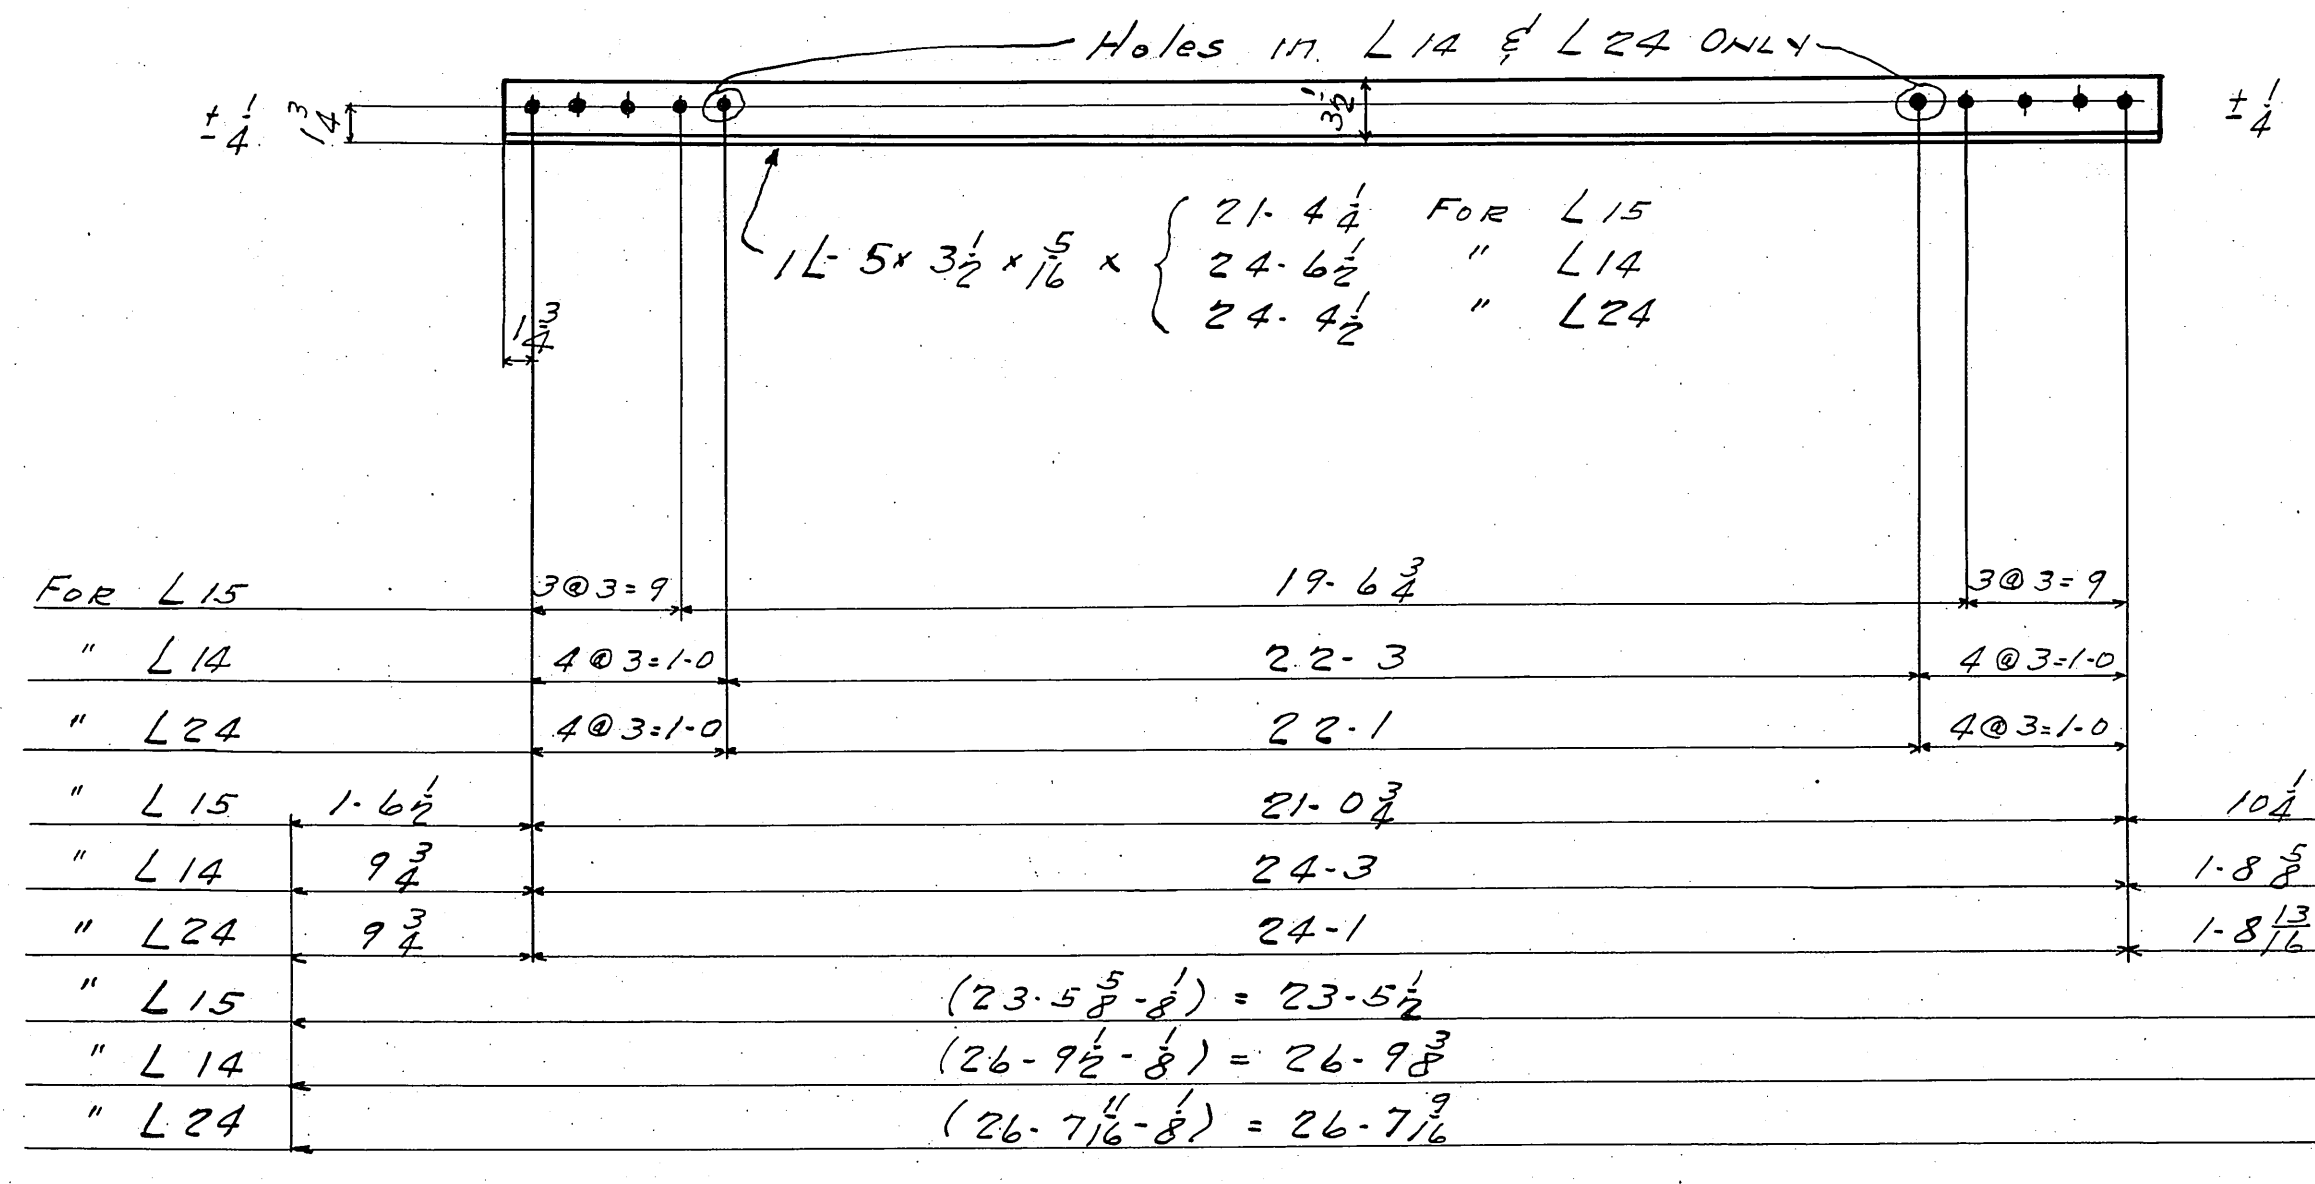 Holes in L14 & L24 ONLY
± 1/4 1 3/4 3 1/2 ± 1/4
21-4 1/4 FOR L15
1L- 5 x 3 1/2 x 5/16 x 24-6 1/2 " L14
24-4 1/2 " L24
1 3/4
FOR L15 3@3=9 19-6 3/4 3@3=9
" L14 4@3=1-0 22-3 4@3=1-0
" L24 4@3=1-0 22-1 4@3=1-0
" L15 1-6 1/2 21-0 3/4 10 1/4
" L14 9 3/4 24-3 1-8 5/8
" L24 9 3/4 24-1 1-8 13/16
" L15 (23-5 5/8 - 1/8) = 23-5 1/2
" L14 (26-9 1/2 - 1/8) = 26-9 3/8
" L24 (26-7 11/16 - 1/8) = 26-7 9/16